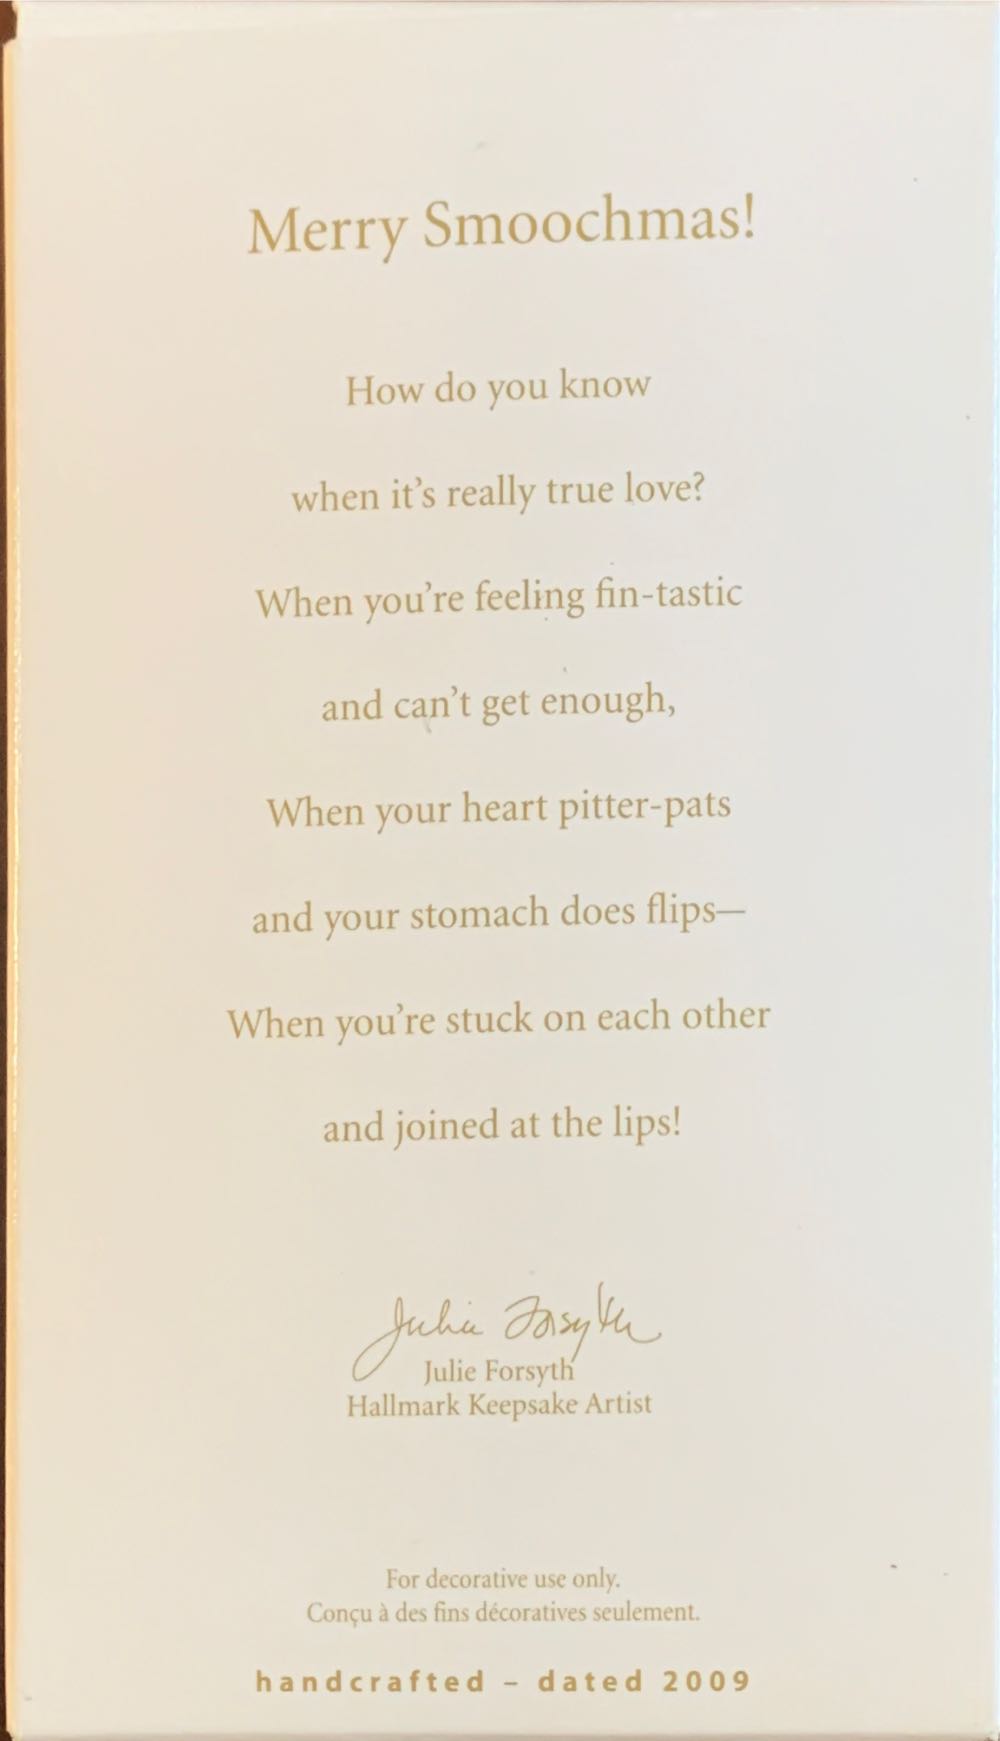 Merry Smoochmas!
How do you know
when it's really true love?
When you're feeling fin-tastic
and can't get enough,
When your heart pitter-pats
and your stomach does flips—
When you're stuck on each other
and joined at the lips!
Julie Forsyth
Julie Forsyth
Hallmark Keepsake Artist
For decorative use only.
Conçu à des fins décoratives seulement.
handcrafted – dated 2009